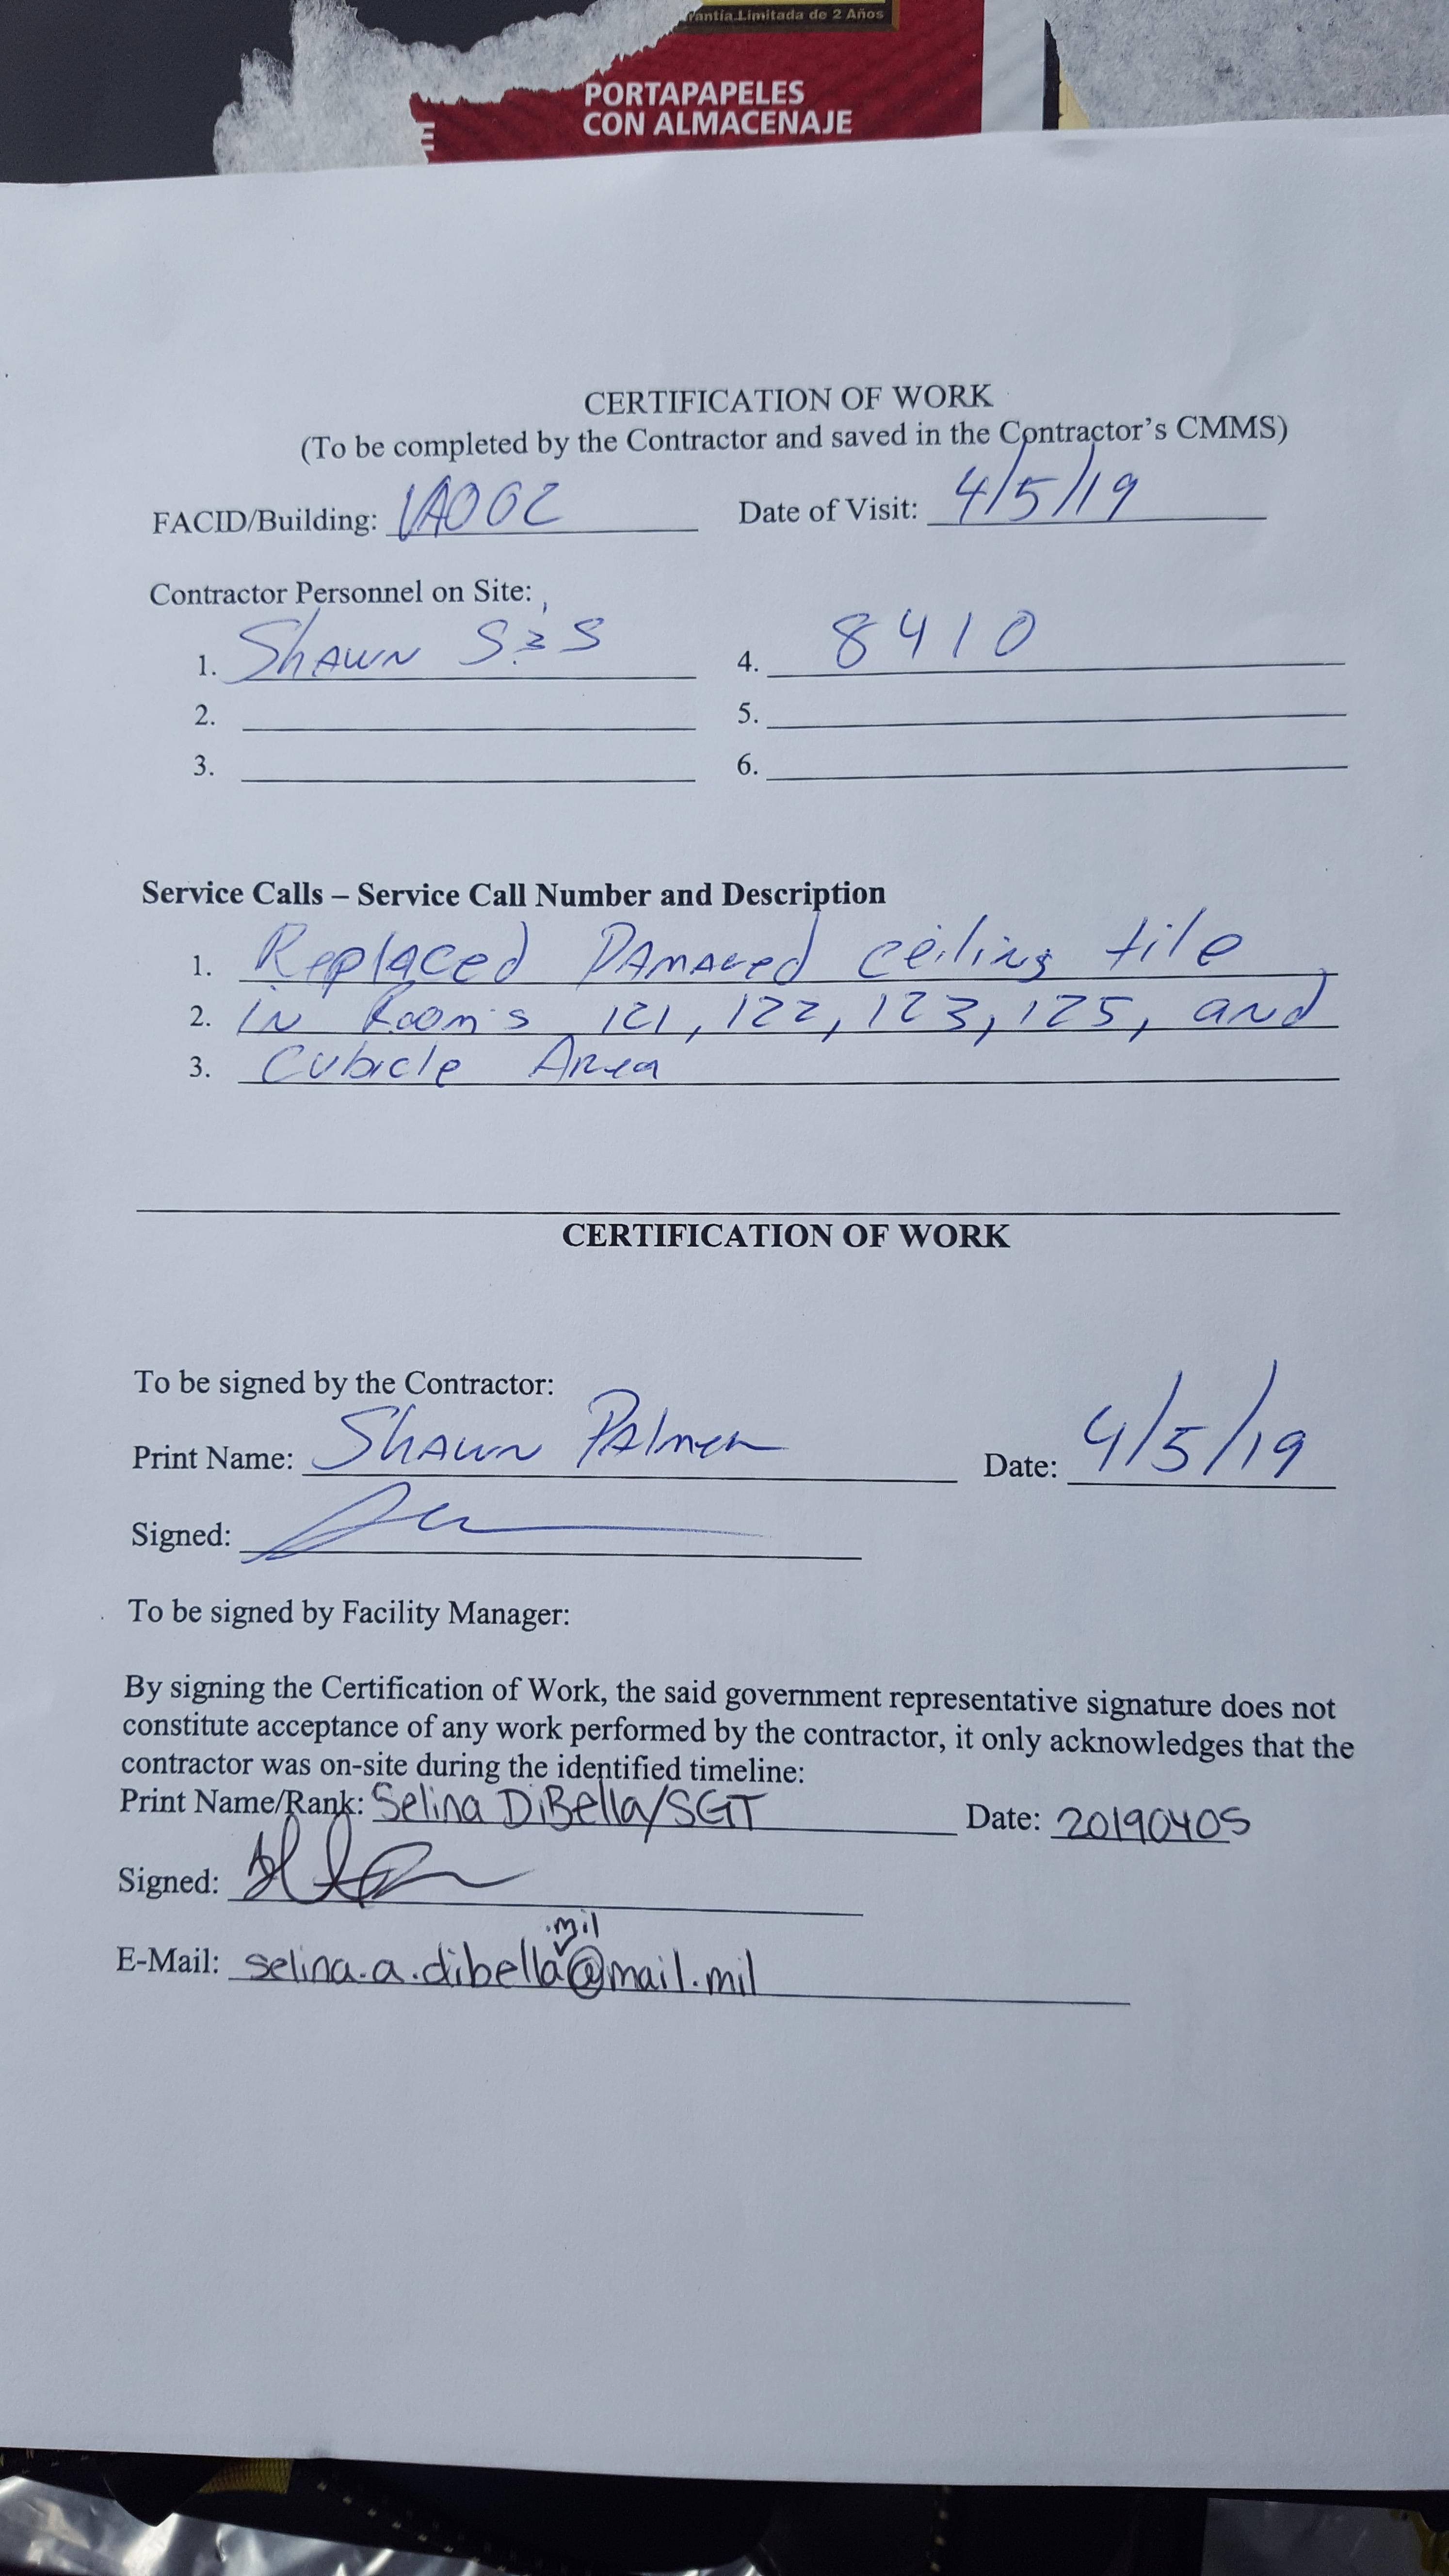 rantía Limitada de 2 Años
PORTAPAPELES
CON ALMACENAJE
E
CERTIFICATION OF WORK
(To be completed by the Contractor and saved in the Contractor's CMMS)
FACID/Building: VA002 Date of Visit: 4/5/19
Contractor Personnel on Site:
1. ShAWN 4. 8410
2. 5.
3. 6.
Service Calls – Service Call Number and Description
1. Replaced DAmaged ceiling tile
2. IN Room's 121, 122, 123, 125, and
3. Cubicle Area
CERTIFICATION OF WORK
To be signed by the Contractor:
Print Name: ShAWN PAlmer Date: 4/5/19
Signed:
To be signed by Facility Manager:
By signing the Certification of Work, the said government representative signature does not
constitute acceptance of any work performed by the contractor, it only acknowledges that the
contractor was on-site during the identified timeline:
Print Name/Rank: Selina DiBella/SGT Date: 20190405
Signed:
.mil
E-Mail: selina.a.dibella@mail.mil